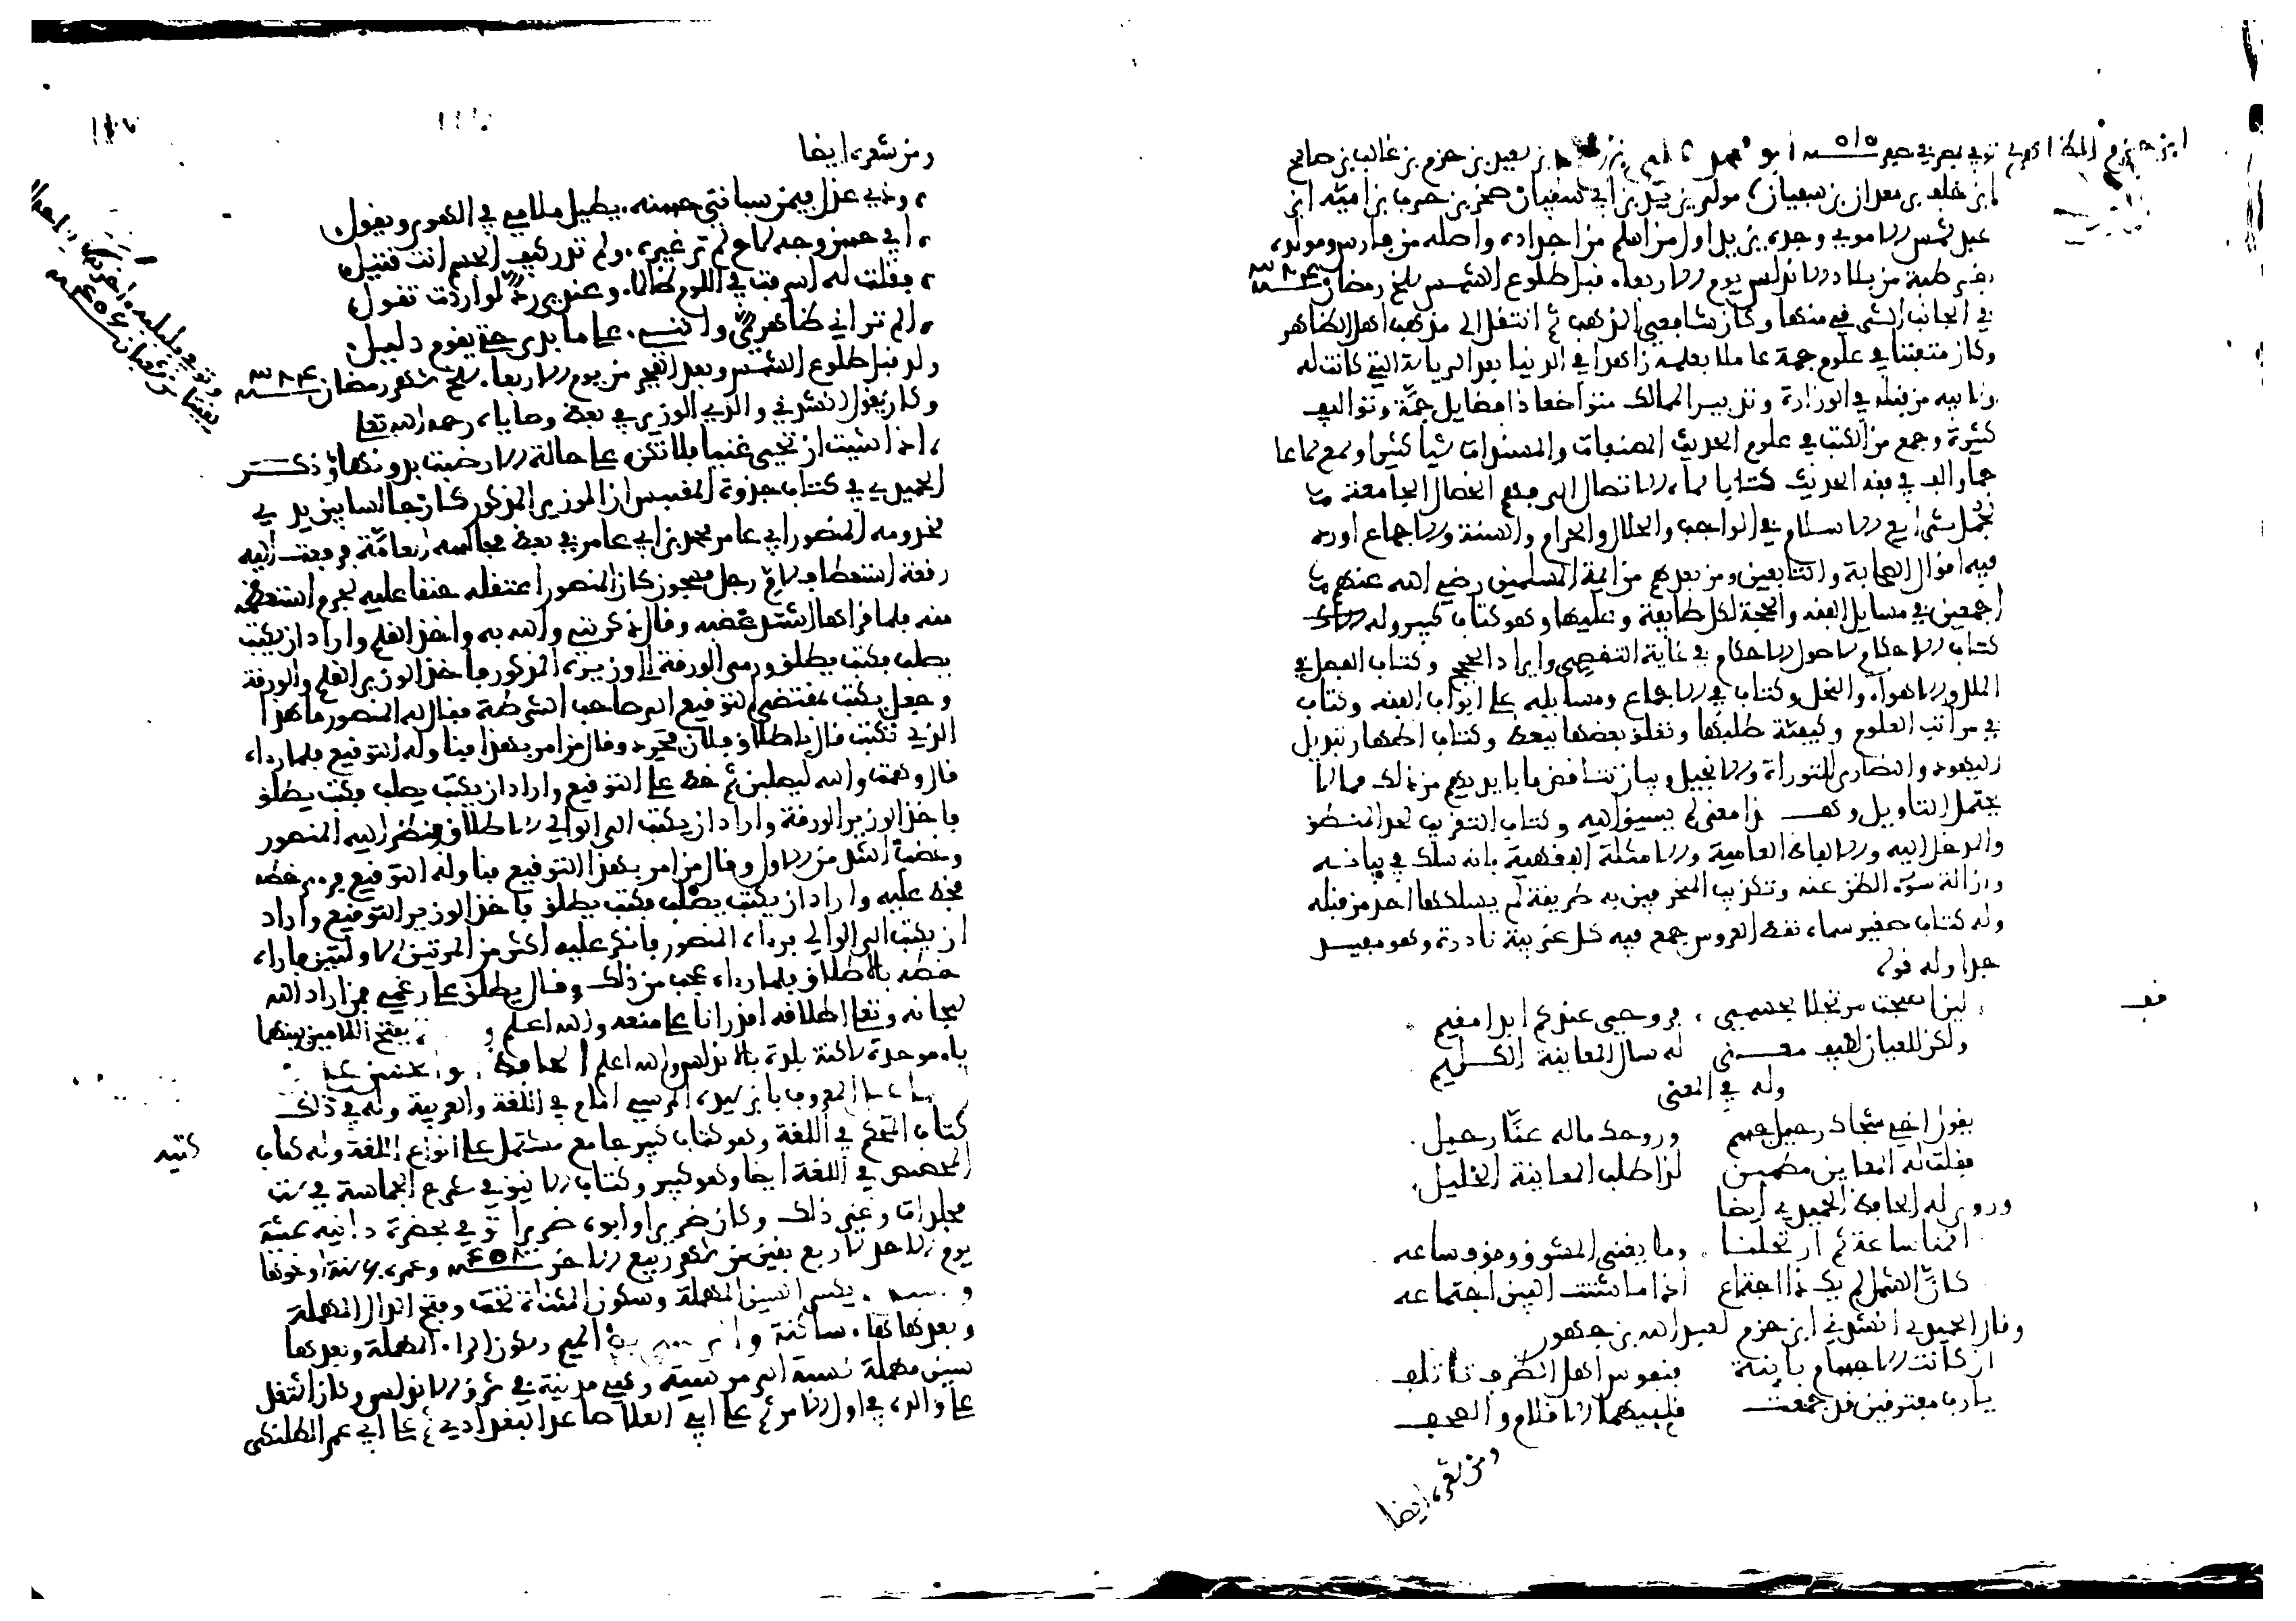 ابن حزم الظاهري توفي بمصر في صفر
بن سعيد بن حزم بن غالب بن صالح
ابن خلف بن معدان بن سفيان مولى يزيد بن ابي سفيان صخر بن حرب بن امية ابن
عبد شمس الاموي وجده يزيد اول من اسلم من اجداده واصله من فارس ومولده
بقرطبة من بلاد الاندلس يوم الاربعاء قبل طلوع الشمس سلخ رمضان سنة ٣٨٤
في الجانب الشرقي منها وكان شافعي المذهب ثم انتقل الى مذهب اهل الظاهر
وكان متفننا في علوم جمة عاملا بعلمه زاهدا في الدنيا بعد الرياسة التي كانت له
ولابيه من قبله في الوزارة وتدبير الممالك متواضعا ذا فضايل جمة وتواليف
كثيرة وجمع من الكتب في علوم الحديث المصنفات والمسندات شيا كثيرا وسمع سماعا
جما والف في فقه الحديث كتابا سماه الايصال الى فهم الخصال الجامعة
لجمل شرايع الاسلام في الواجب والحلال والحرام والسنة والاجماع اورد
فيه اقوال الصحابة والتابعين ومن بعدهم من ايمة المسلمين رضي الله عنهم
اجمعين في مسايل الفقه والحجة لكل طايفة وعليها وهو كتاب كبير وله
كتاب الاحكام لاصول الاحكام في غاية التقصي وايراد الحجج وكتاب الفصل في
الملل والاهواء والنحل وكتاب في الاجماع ومسايله على ابواب الفقه وكتاب
في مراتب العلوم وكيفية طلبها وتعلق بعضها ببعض وكتاب اظهار تبديل
اليهود والنصارى للتوراة والانجيل وبيان تناقض ما بايديهم من ذلك مما لا
يحتمل التاويل وهذا معنى لم يسبق اليه وكتاب التقريب لحد المنطق
والمدخل اليه والالفاظ العامية والامثلة الفقهية فانه سلك في بيانه
وازالة سوء الظن عنه وتكذيب المخرفين به طريقة لم يسلكها احد من قبله
وله كتاب صغير سماه نقط العروس جمع فيه كل غريبة نادرة وهو مفيد
جدا وله قوله
لين اصبحت مرتحلا بجسمي ، فروحي عندكم ابدا مقيم
ولكن للعيان لطيف معنى له سال المعاينة الكليم
وله في المعنى
يقول اخي شجاك رحيل جسم وروحك ماله عنا رحيل
فقلت له المعاين مطمئن لذا طلب المعاينة الخليل
وروى له الحافظ الحميدي ايضا
اقمنا ساعة ثم ارتحلنا وما يغني المشوق وقوف ساعه
كان الشمل لم يك ذا اجتماع اذا ما شتت البين اجتماعه
وقال الحميدي انشدني ابن حزم لعبد الله بن جهور
ان كانت الاجسام باينة فنفوس اهل الظرف تاتلف
يا رب مفترقين قد جمعت قلبيهما الاقلام والصحف
ومن شعره ايضا
ومن شعره ايضا
وذي عذل فيمن سباني حسنه يطيل ملامي في الهوى ويقول
افي حسن وجه لاح لم تر غيره ولم تدر كيف الجسم انت قتيل
فقلت له اسرفت في اللوم ظالما وعندي رد لو اردت تقول
الم تر اني ظاهري وانني على ما بدى حتى يقوم دليل
ولد قبل طلوع الشمس وبعد الفجر من يوم الاربعاء سلخ شهر رمضان سنة ٣٨٤
وكان يقول انشدني والدي الوزير في بعض وصاياه رحمه الله تعالى
اذا شيت ان تحيى غنيا فلا تكن على حالة الا رضيت بدونها وذكر
الحميدي في كتاب جذوة المقتبس ان الوزير المذكور كان جالسا بين يدي
مخدومه المنصور ابي عامر محمد بن ابي عامر في بعض مجالسه للعامة فرفعت اليه
رقعة استعطاف لام رجل مسجون كان المنصور اعتقله حنقا عليه لجرم استعظمه
منه فلما قراها اشتد غضبه وقال ذكرتني والله به واخذ القلم واراد ان يكتب
يصلب فكتب يطلق ورمى الورقة الى وزيره المذكور فاخذ الوزير القلم والورقة
وجعل يكتب بمقتضى التوقيع الى صاحب الشرطة فقال له المنصور ما هذا
الذي تكتب قال باطلاق فلان فحرد وقال من امر بهذا فناوله التوقيع فلما راه
قال وهمت والله ليصلبن ثم خط على التوقيع واراد ان يكتب يصلب فكتب يطلق
فاخذ الوزير الورقة واراد ان يكتب الى الوالي بالاطلاق فنظر اليه المنصور
وغضب اشد من الاول وقال من امر بهذا التوقيع فناوله التوقيع فراى خطه
فخط عليه واراد ان يكتب يصلب فكتب يطلق فاخذ الوزير التوقيع واراد
ان يكتب الى الوالي فراه المنصور فانكر عليه اكثر من المرتين الاولتين فاراه
خطه بالاطلاق فلما راه عجب من ذلك وقال يطلق على رغمي فمن اراد الله
سبحانه وتعالى اطلاقه لا اقدر انا على منعه والله اعلم و بفتح اللامين بينهما
باء موحدة ساكنة بلدة بالاندلس والله اعلم الحافظ ابو الحسن علي
المعروف بابن سيده المرسي امام في اللغة والعربية وله في ذلك
كتاب المحكم في اللغة وهو كتاب كبير جامع مشتمل على انواع اللغة وله كتاب
المخصص في اللغة ايضا وهو كبير وكتاب الانيق في شرح الحماسة في ست
مجلدات وغير ذلك وكان ضريرا وابوه ضريرا توفي بحضرة دانية عشية
يوم الاحد لاربع بقين من شهر ربيع الاخر سنة ٤٥٨ وعمره ٦٠ سنة او نحوها
و بكسر السين المهملة وسكون المثناة تحت وفتح الدال المهملة
وبعدها هاء ساكنة و الميم وسكون الراء المهملة وبعدها
سين مهملة نسبة الى مرسية وهي مدينة في شرق الاندلس وكان اشتغل
على والده في اول الامر ثم على ابي العلا صاعد البغدادي ثم على ابي عمر الطلمنكي